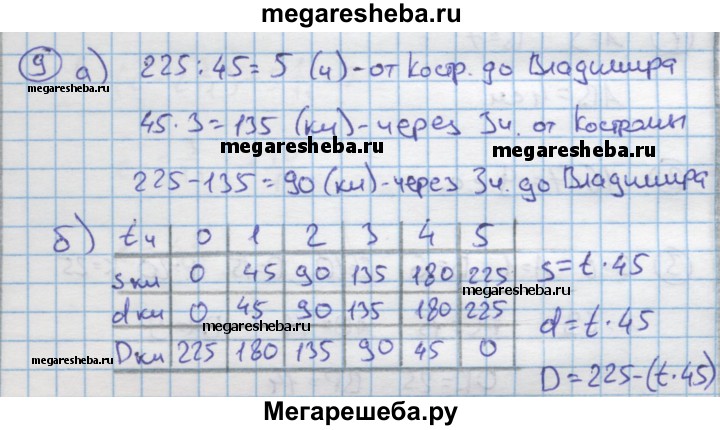 megaresheba.ru
9 а) 225 : 45 = 5 (ч) - от Костр. до Владимира
megaresheba.ru
45 · 3 = 135 (км) - через 3ч. от Костромы
megaresheba.ru
225 - 135 = 90 (км) - через 3ч. до Владимира
б) t ч 0 1 2 3 4 5
s км 0 45 90 135 180 225 s = t · 45
megaresheba.ru
d км 0 45 90 135 180 225 d = t · 45
megaresheba.ru
D км 225 180 135 90 45 0 D = 225 - (t · 45)
Мегарешеба.ру